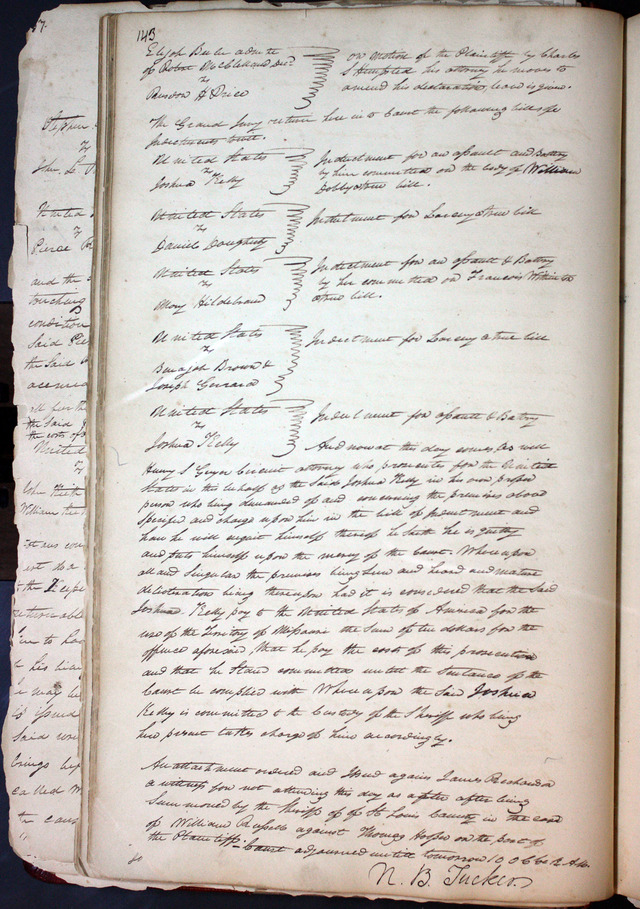 143
Elijah Beebe admr
of Robert McClelland Decd
vs
Risdon H Price
On motion of the Plaintiff by Charles
S Hempsted his attorney he moves to
amend his declaration, leave is given.
The Grand Jury return here in to Court the following bills of
Indictments to wit.
United States
vs
Joshua Kelly
Indictment for an assault and Battery
by him committed on the body of William
Dobbs a true bill.
United States
vs
Daniel Dougherty
Indictment for Larceny a true bill
United States
vs
Mary Hildebrand
Indictment for an assault & Battery
by her committed on Francois
a true bill.
United States
vs
Benajah Brown &
Joseph Gerrard
Indictment for Larceny a true bill
United States
vs
Joshua Kelly
Indictment for assault & Battery
And now at this day comes as well
Henry S Geyer Circuit attorney who prosecutes for the United
States in this behalf as the said Joshua Kelly in his own proper
person who being demanded of and concerning the premises above
specified and charge upon him in the bill of Indictment and
how he will acquit himself thereof he saith he is guilty
and puts himself upon the mercy of the Court. Whereupon
all and singular the premises being seen and heard and mature
deliberation being thereupon had it is considered that the said
Joshua Kelly pay to the United States of America for the
use of the Territory of Missouri the sum of ten dollars for the
offence aforesaid, that he pay the cost of this prosecution
and that he stand committed until the sentence of the
Court be complied with Whereupon the said Joshua
Kelly is committed to the Custody of the Sheriff who being
here present takes charge of him accordingly.
An attachment ordered and Issued against James Richardson
a witness for not attending this day as after being
summoned by the Sheriff of St Louis County in the case
of William Russell against Thomas on the part of
the Plaintiff Court adjourned until tomorrow 10 o'clock A.M.
N. B. Tucker
57.
Stephen
vs
John L
United
vs
Pierce
and the
touching
condition
Said
the said
all for the
the said
the costs of
United
vs
John
William